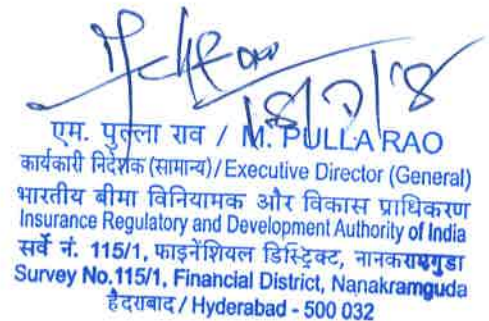 18/7/18
एम. पुल्ला राव / M. PULLA RAO
कार्यकारी निदेशक (सामान्य) / Executive Director (General)
भारतीय बीमा विनियामक और विकास प्राधिकरण
Insurance Regulatory and Development Authority of India
सर्वे नं. 115/1, फाइनेंशियल डिस्ट्रिक्ट, नानकरामगुडा
Survey No.115/1, Financial District, Nanakramguda
हैदराबाद / Hyderabad - 500 032